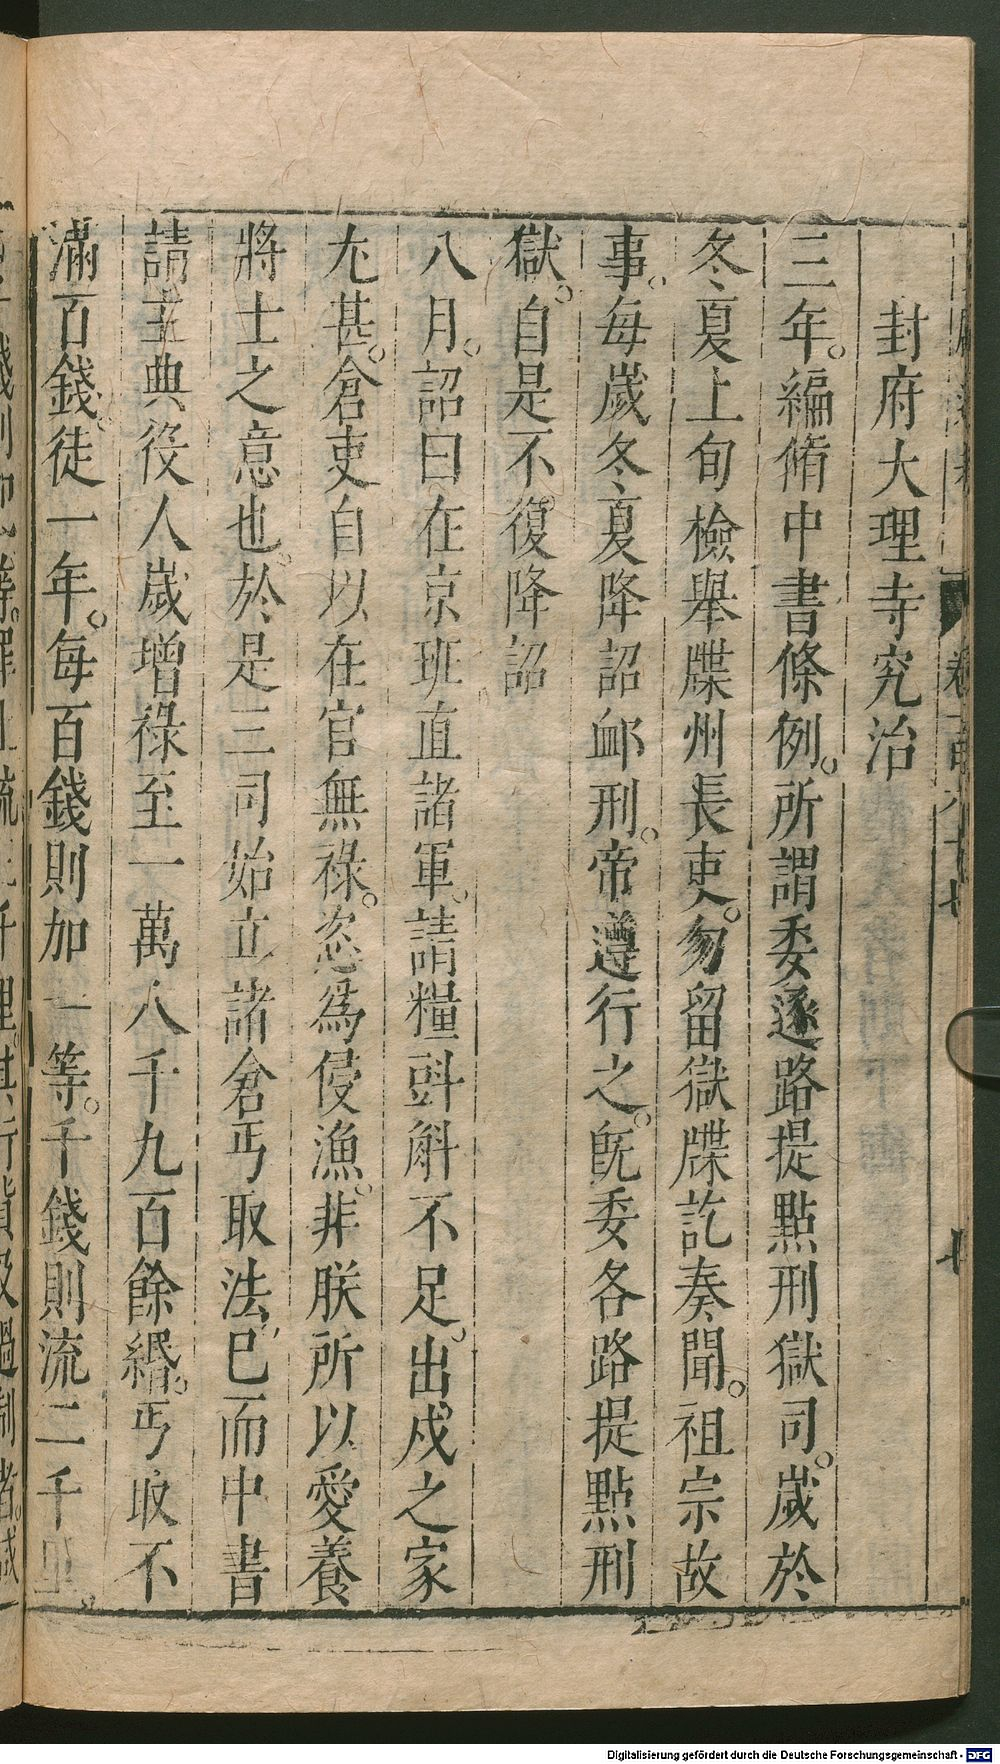 封府大理寺究治
三年。編脩中書條例。所謂委逐路提點刑獄司。歲於
冬夏上旬檢舉牒州長吏。勿留獄牒訖奏聞。祖宗故
事。每歲冬夏降詔䘏刑。帝遵行之。旣委各路提點刑
獄。自是不復降詔
八月。詔曰。在京班直諸軍。請糧㪷斛不足。出戍之家
尤甚。倉吏自以在官無祿。恣爲侵漁。非朕所以愛養
將士之意也。於是三司始立諸倉丐取法。已而中書
請主典役人歲增祿至一萬八千九百餘緡。丐取不
滿百錢。徒一年。每百錢則加一等。千錢則流二千里。
Digitalisierung gefördert durch die Deutsche Forschungsgemeinschaft - DFG